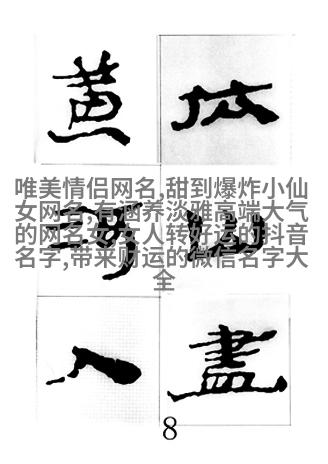 依山盡
黄河入
唯美情侣网名,甜到爆炸小仙
女网名,有涵养淡雅高端大气
的网名女,女人转好运的抖音
名字,带来财运的微信名字大
全
8